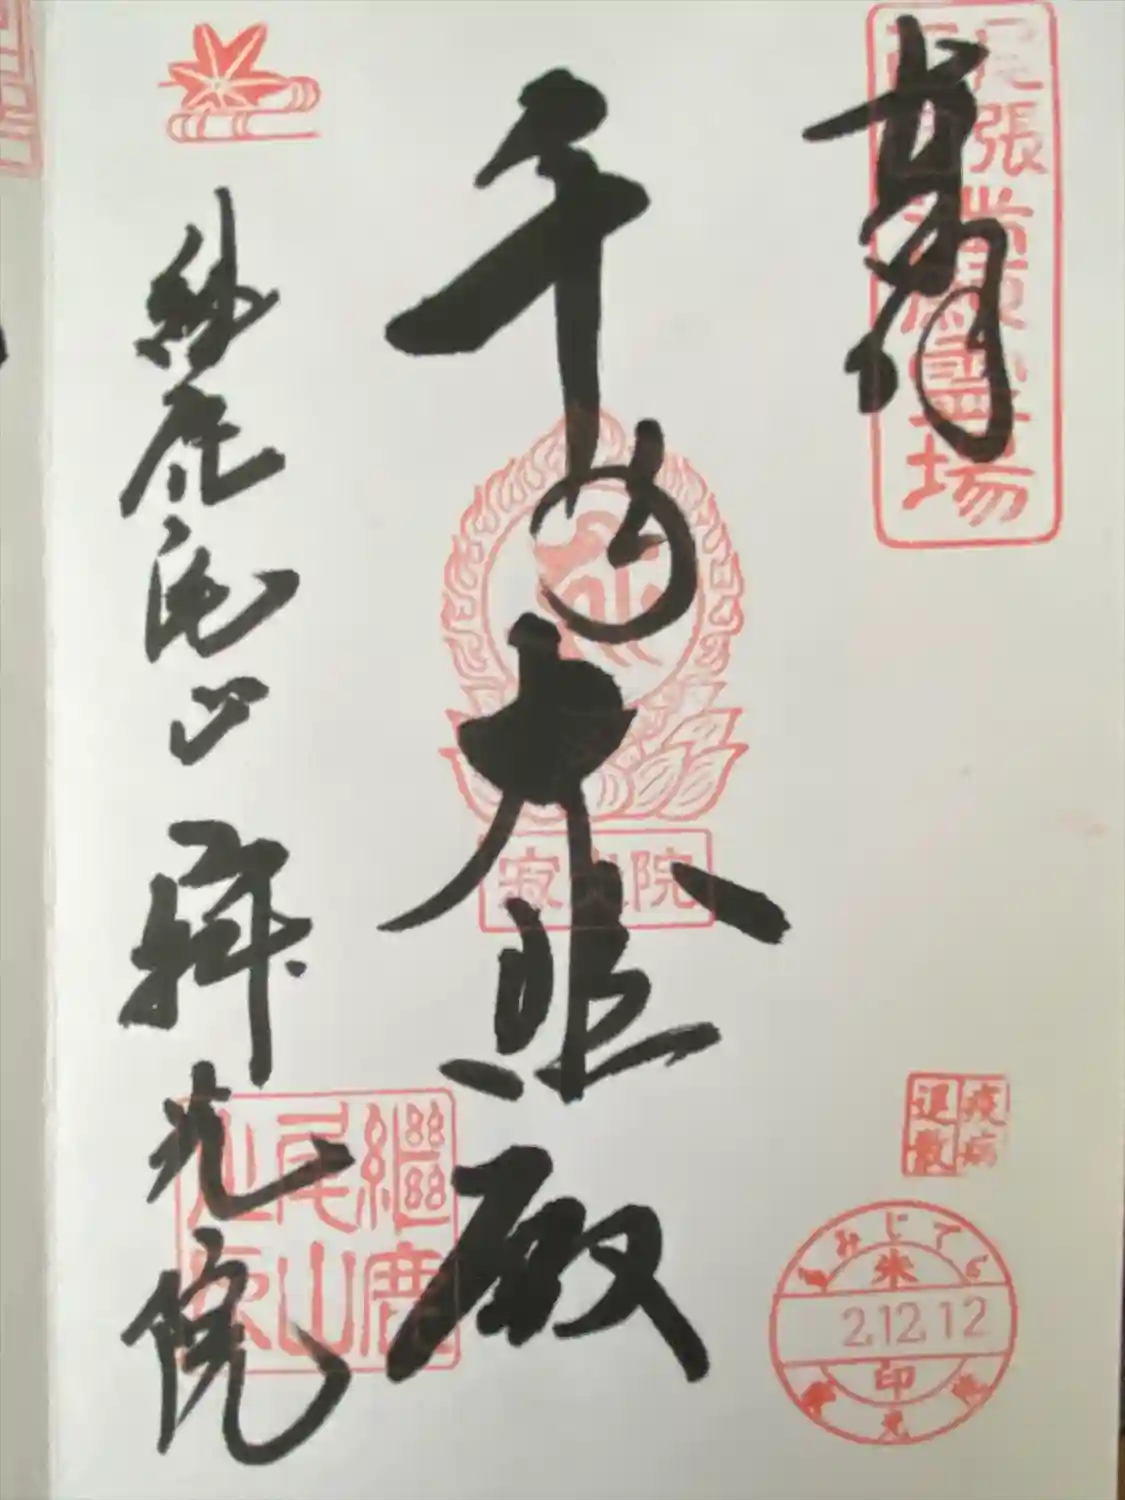 奉拝
尾張
霊場
千手大悲殿
寂光院
継鹿尾山 寂光院
継鹿
尾山
疫病
退散
もみじでら
朱
2.12.12
印
寂光院